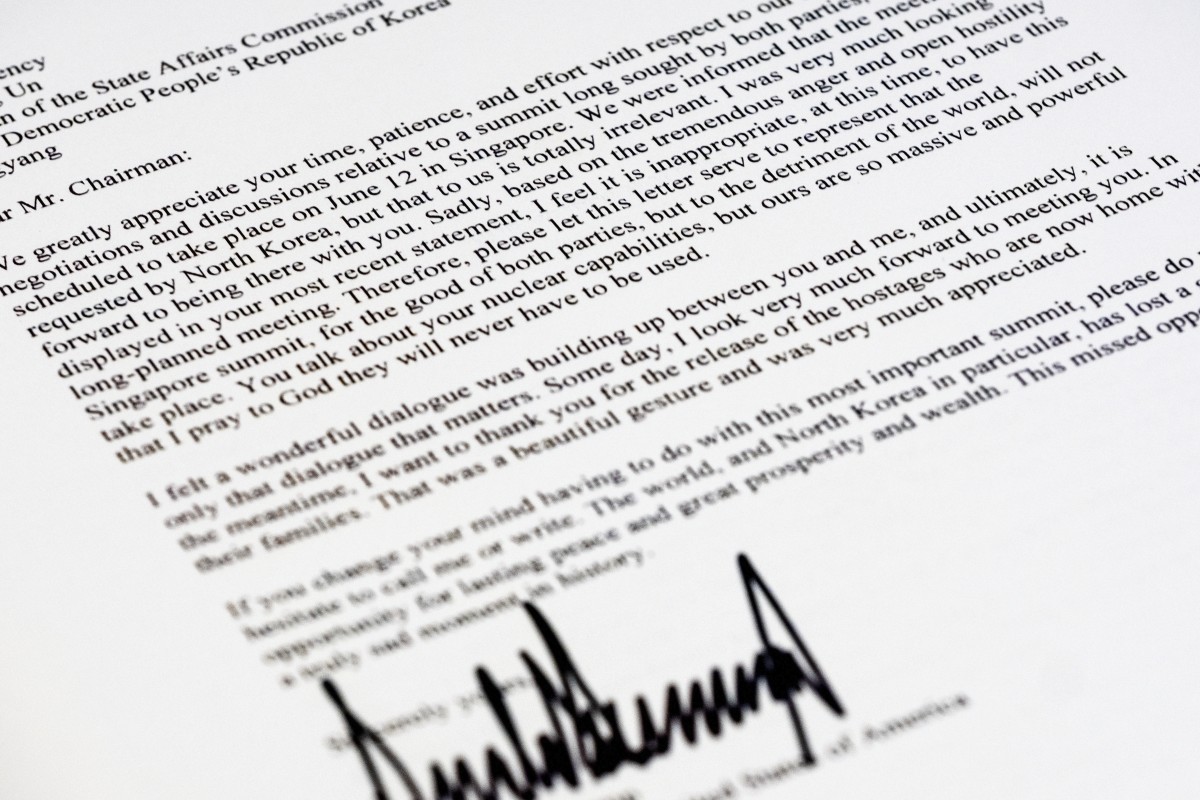 ency
Un
n of the State Affairs Commission
Democratic People's Republic of Korea
gyang
r Mr. Chairman:
We greatly appreciate your time, patience, and effort with respect to our
negotiations and discussions relative to a summit long sought by both parties,
scheduled to take place on June 12 in Singapore. We were informed that the
requested by North Korea, but that to us is totally irrelevant. I was very much looking
forward to being there with you. Sadly, based on the tremendous anger and open hostility
displayed in your most recent statement, I feel it is inappropriate, at this time, to have this
long-planned meeting. Therefore, please let this letter serve to represent that the
Singapore summit, for the good of both parties, but to the detriment of the world, will not
take place. You talk about your nuclear capabilities, but ours are so massive and powerful
that I pray to God they will never have to be used.
I felt a wonderful dialogue was building up between you and me, and ultimately, it is
only that dialogue that matters. Some day, I look very much forward to meeting you. In
the meantime, I want to thank you for the release of the hostages who are now home with
their families. That was a beautiful gesture and was very much appreciated.
If you change your mind having to do with this most important summit, please do
hesitate to call me or write. The world, and North Korea in particular, has lost a
opportunity for lasting peace and great prosperity and wealth. This missed opp
a truly sad moment in history.
of America